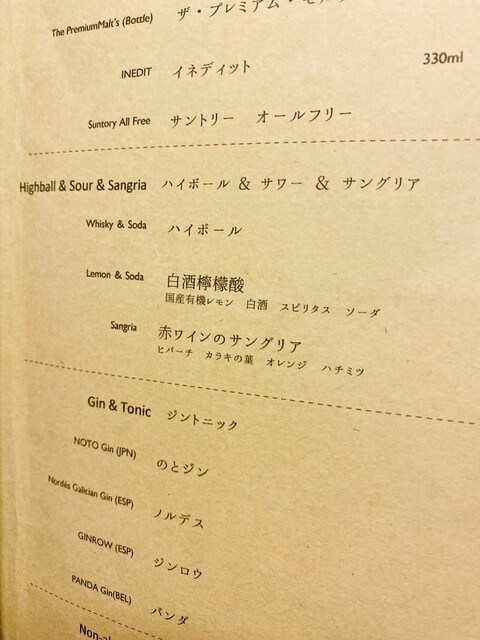 The PremiumMalt's (Bottle) ザ・プレミアム・モルツ
INEDIT イネディット 330ml
Suntory All Free サントリー オールフリー
Highball & Sour & Sangria ハイボール & サワー & サングリア
Whisky & Soda ハイボール
Lemon & Soda 白酒檸檬酸
国産有機レモン 白酒 スピリタス ソーダ
Sangria 赤ワインのサングリア
ヒバーチ カラキの葉 オレンジ ハチミツ
Gin & Tonic ジントニック
NOTO Gin (JPN) のとジン
Nordés Galician Gin (ESP) ノルデス
GINROW (ESP) ジンロウ
PANDA Gin(BEL) パンダ